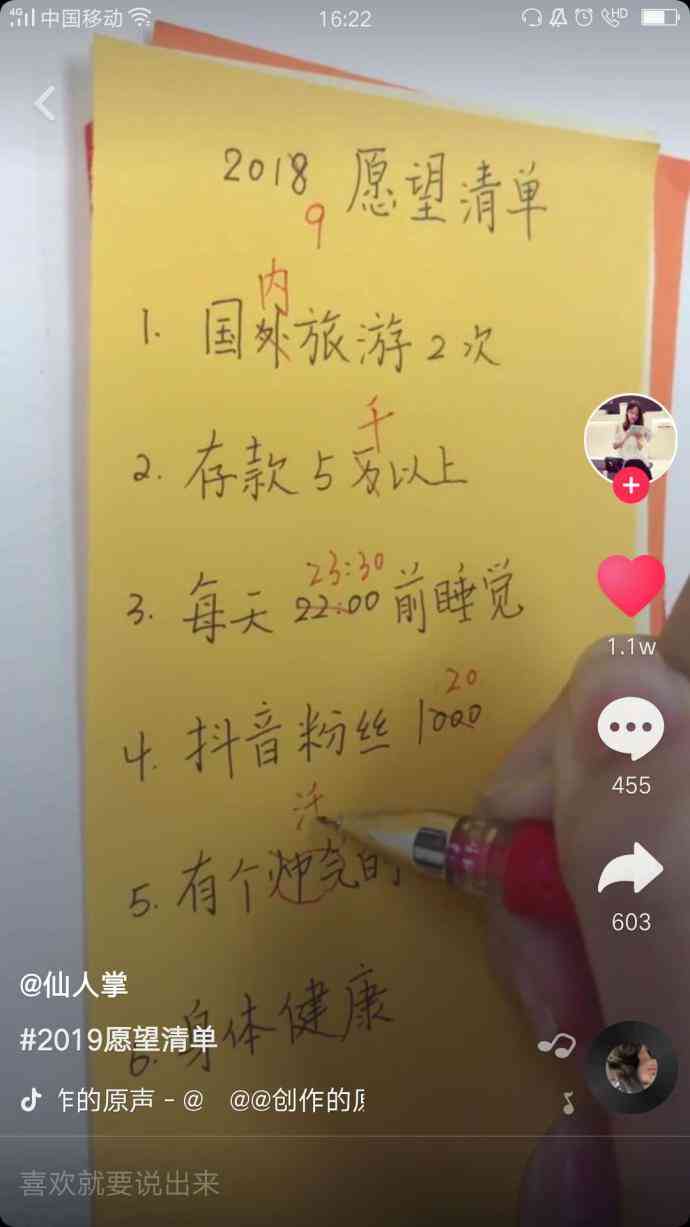 4G 中国移动 16:22 HD
2018 愿望清单
9
内
1. 国外旅游2次
千
2. 存款5万以上
23:30
3. 每天 22:00 前睡觉
20
4. 抖音粉丝 1000
5. 有个帅气的
6. 身体健康
1.1w
455
603
@仙人掌
#2019愿望清单
乍的原声 - @ @@创作的原
喜欢就要说出来